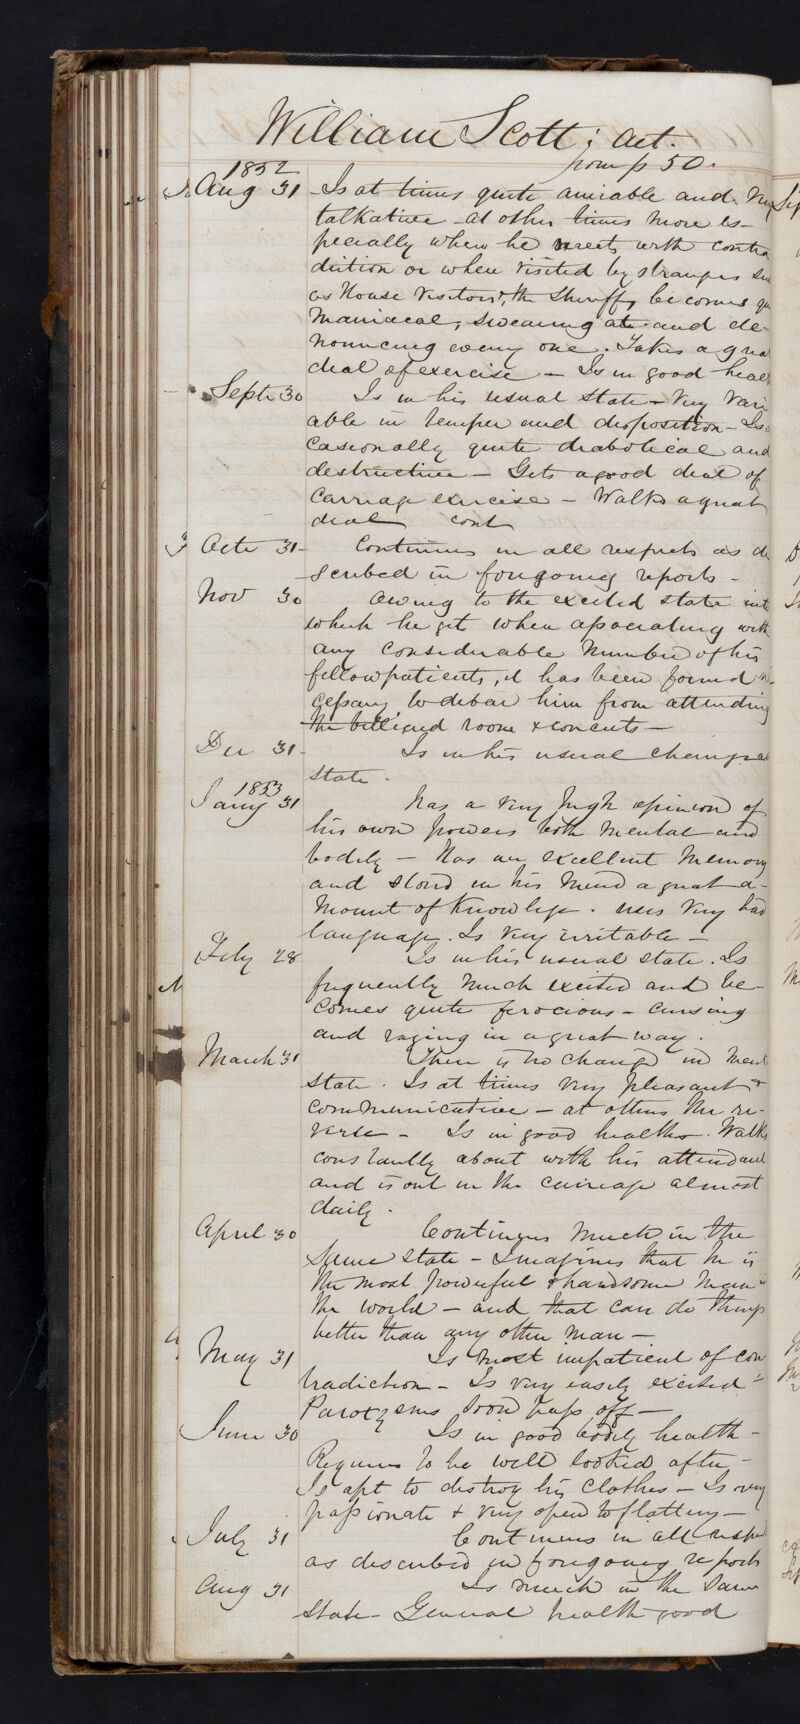 William Scott; aet.
from p 50.
1852
Aug 31 Is at times quite amiable and
talkative at other times more es-
pecially when he meets with contra
diction or when visited by strangers
as House Visitors, the Sheriff, becomes
maniacal, swearing at and de-
nouncing every one. Takes a great
deal of exercise – Is in good heal
Septr 30 Is in his usual state – Very vari
able in temper and disposition – Is
casionally quite diabolical and
destructive – Gets a good deal of
carriage exercise – Walks a great
deal cont
Octr 31 – Continues in all respects as de
scribed in foregoing reports –
Nov 30 Owing to the excited state int
which he get when associating with
any considerable number of his
fellow patients, it has been found n
cessary to debar him from attending
the billiard room & concerts –
Dec 31 – Is in his usual
state.
1853
Jany 31 Has a very high opinion of
his own powers both mental and
bodily – Has an excellent memory
and stored in his mind a great a-
mount of knowlege. uses very bad
language. Is very irritable –
Feby 28 Is in his usual state. Is
frequently much excited and be-
comes quite ferocious – cursing
and raging in a great way.
March 31 There is no change in ment
state. Is at times very pleasant &
communicative – at others the re-
verse – Is in good health. Walks
constantly about with his attendant
and is out in the carriage almost
daily.
April 30 Continues much in the
same state – Imagines that he is
the most powerful & handsome man in
the world – and that can do things
better than any other man –
May 31 Is most impatient of con
tradiction – Is very easily excited –
Paroxysms soon pass off –
June 30 Is in good bodily health –
Requires to be well looked after –
Is apt to destroy his clothes – Is very
passionate & very open to flattery –
July 31 Continues in all respec
as described in foregoing reports
Aug 31 Is much in the same
state – General health good